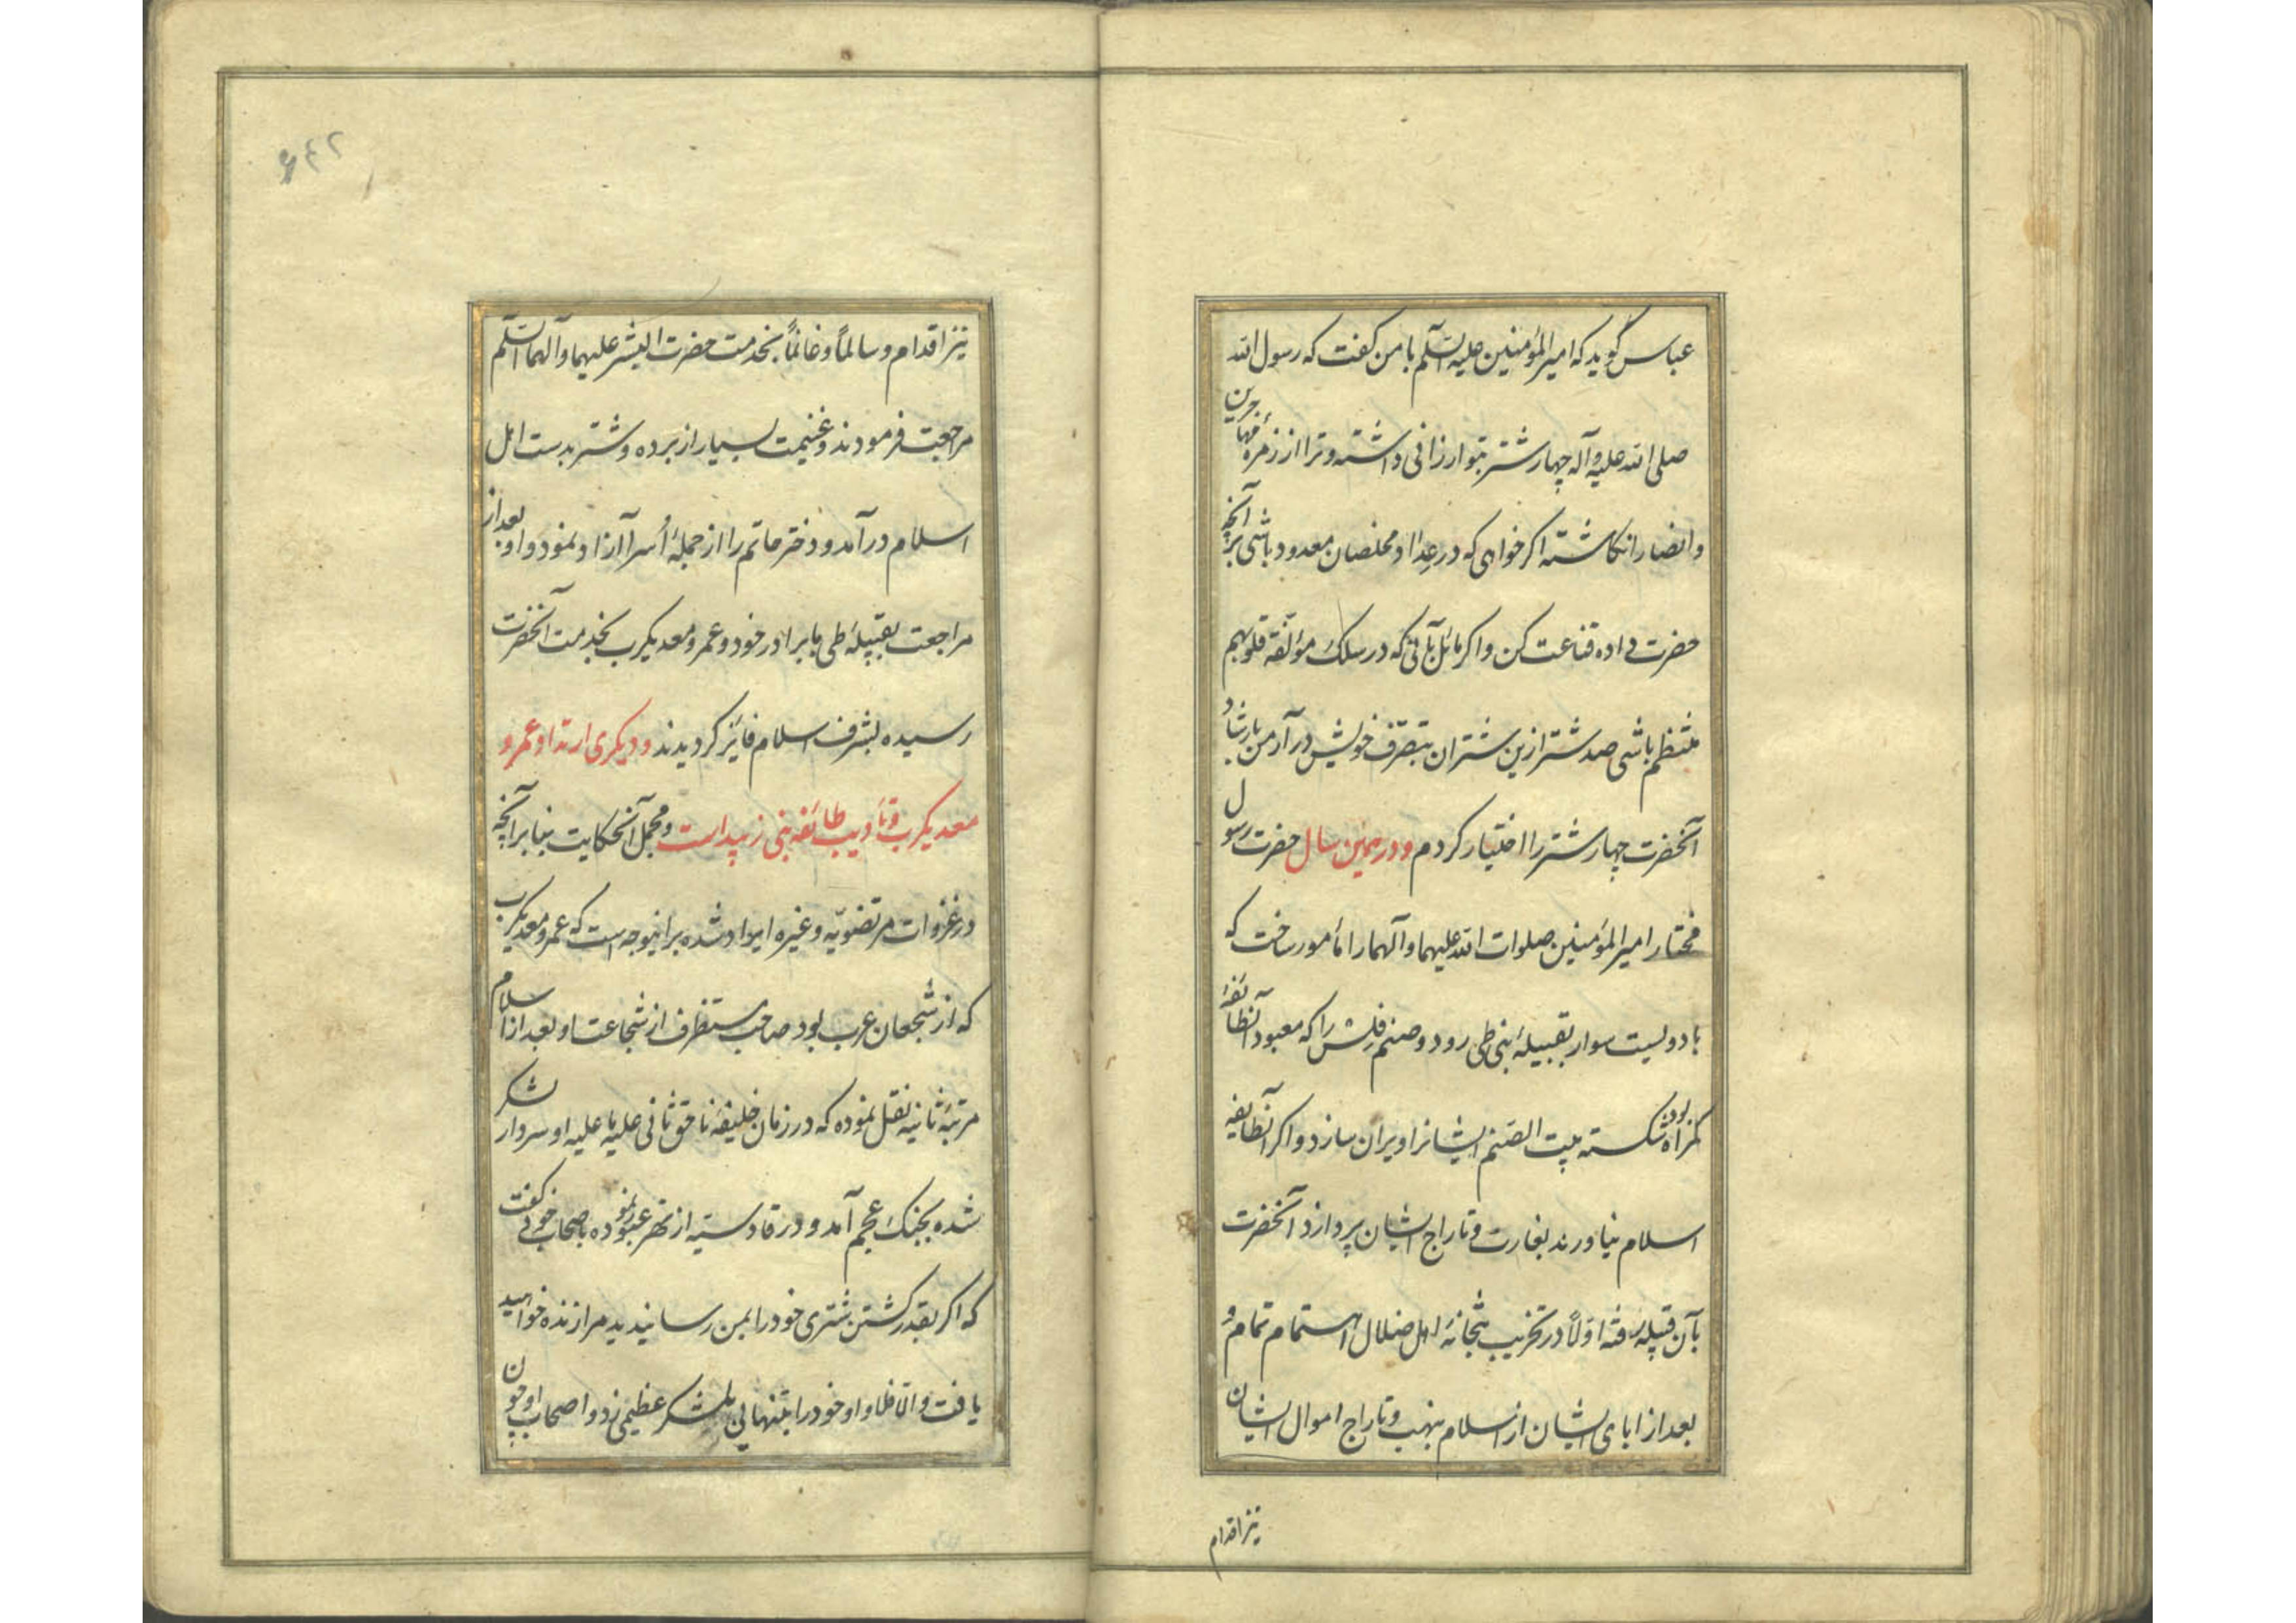 عباس گوید که امیرالمؤمنین علیه السلم با من گفت که رسول الله
صلی الله علیه و آله چهار شتر بتو ارزانی داشته و ترا از زمرهٔ مهاجرین
و انصار انگاشته اگر خواهی که در عداد مخلصان معدود باشی بر آنچه
حضرت داده قناعت کن و اگر مائل بآنی که در سلک مؤلفة قلوبهم
منتظم باشی صد شتر ازین شتران بتصرف خویش درآر من بارشاد
آنحضرت چهار شتر را اختیار کردم و در همین سال حضرت رسول
مختار امیرالمؤمنین صلوات الله علیهما و آلهما را مأمور ساخت که
با دویست سوار بقبیلهٔ بنی طی رود و صنم فلس را که معبود آنطائفهٔ
کمراه بود شکسته بیت الصنم ایشانرا ویران سازد و اگر آنطایفه
اسلام نیاورند بغارت و تاراج ایشان پردازد آنحضرت
بآن قبیله رفته اولاً در تخریب بتخانهٔ اهل ضلال اهتمام تمام و
بعد از ابای ایشان از اسلام بنهب و تاراج اموال ایشان
نیز اقدام
۶۴۲
نیز اقدام و سالماً و غانماً بخدمت حضرت البشر علیهما و آلهما السلم
مراجعت فرمودند و غنیمت بسیار از برده و شتر بدست اهل
اسلام درآمد و دختر حاتم را از جملهٔ أسرا آزاد نمود و او بعد از
مراجعت بقبیلهٔ طی با برادر خود و عمرو معدیکرب بخدمت آنحضرت
رسیده بشرف اسلام فائز گردیدند و دیگری ارتداد عمرو
معدیکرب و تأدیب طائفهٔ بنی زبید است و مجمل آنحکایت بنا بر آنچه
در غزوات مرتضویه و غیره ایراد شده براینوجه است که عمرو معدیکرب
که از شجعان عرب بود صاحب مستظرف از شجاعت او بعد از اسلام
مرتبهٔ ثانیه نقل نموده که در زمان خلیفهٔ ناحق ثانی علیه ما علیه او سردار لشکر
شده بجنگ عجم آمد و در قادسیه از نهر عبور نموده باصحاب خود گفت
که اگر بقدر کشتن شتری خود را بمن رسانیدید مرا زنده خواهید
یافت و الا فلا و او خود را بتنهایی بلشکر عظیمی زد و اصحاب او چون